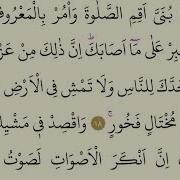 بُنَيَّ أَقِمِ الصَّلٰوةَ وَأْمُرْ بِالْمَعْرُوفِ
عَلٰى مَآ أَصَابَكَ ۖ إِنَّ ذٰلِكَ مِنْ
لِلنَّاسِ وَلَا تَمْشِ فِي الْأَرْضِ
مُخْتَالٍ فَخُورٍ ۚ ١٨ وَاقْصِدْ فِي
إِنَّ أَنكَرَ الْأَصْوَاتِ لَصَوْتُ